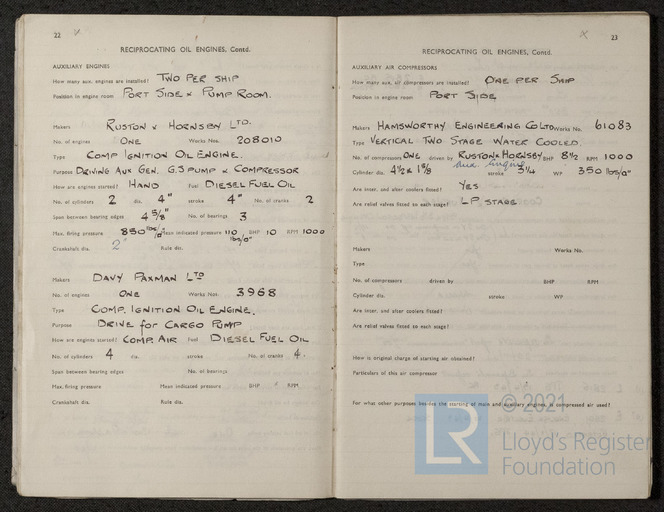 22
RECIPROCATING OIL ENGINES, Contd.
AUXILIARY ENGINES
How many aux. engines are installed? TWO PER SHIP
Position in engine room PORT SIDE & PUMP ROOM.
Makers RUSTON & HORNSBY LTD.
No. of engines ONE Works Nos. 208010
Type COMP IGNITION OIL ENGINE.
Purpose DRIVING AUX GEN. G.S PUMP & COMPRESSOR
How are engines started? HAND Fuel DIESEL FUEL OIL
No. of cylinders 2 dia. 4" stroke 4" No. of cranks 2
Span between bearing edges 4 5/8" No. of bearings 3
Max. firing pressure 850 lbs/□" Mean indicated pressure 110 lbs/□" BHP 10 RPM 1000
Crankshaft dia. 2" Rule dia.
Makers DAVY PAXMAN LTD
No. of engines ONE Works Nos. 3968
Type COMP. IGNITION OIL ENGINE.
Purpose DRIVE for CARGO PUMP
How are engines started? COMP. AIR Fuel DIESEL FUEL OIL
No. of cylinders 4 dia. stroke No. of cranks 4.
Span between bearing edges No. of bearings
Max. firing pressure Mean indicated pressure BHP RPM
Crankshaft dia. Rule dia.
23
RECIPROCATING OIL ENGINES, Contd.
AUXILIARY AIR COMPRESSORS
How many aux. air compressors are installed? ONE PER SHIP
Position in engine room PORT SIDE
Makers HAMSWORTHY ENGINEERING CO LTD Works No. 61083
Type VERTICAL TWO STAGE WATER COOLED.
No. of compressors ONE driven by RUSTON & HORNSBY BHP 8½ RPM 1000
Aux Engine
Cylinder dia. 4½ x 1⅞ stroke 3¼ WP 350 lbs/□"
Are inter. and after coolers fitted? YES
Are relief valves fitted to each stage? LP STAGE
Makers Works No.
Type
No. of compressors driven by BHP RPM
Cylinder dia. stroke WP
Are inter. and after coolers fitted?
Are relief valves fitted to each stage?
How is original charge of starting air obtained?
Particulars of this air compressor
For what other purposes besides the starting of main and auxiliary engines, is compressed air used?
© 2021
LR
Lloyd's Register
Foundation